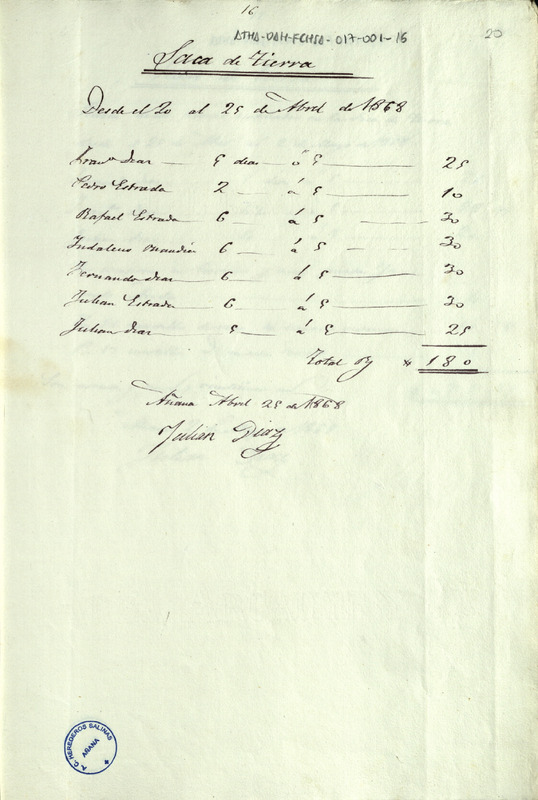 16
ATHA-DAH-FCHSA-017-001-16
20
Saca de Tierra
Desde el 20 al 25 de Abril de 1868
Franco Diaz 5 dias á 5 25
Pedro Estrada 2 á 5 10
Rafael Estrada 6 á 5 30
Indalecio 6 á 5 30
Fernando Diaz 6 á 5 30
Julian Estrada 6 á 5 30
Julian Diaz 5 á 5 25
Total 180
Añana Abril 25 de 1868
Julian Diaz
A. C. HEREDEROS SALINAS
AÑANA